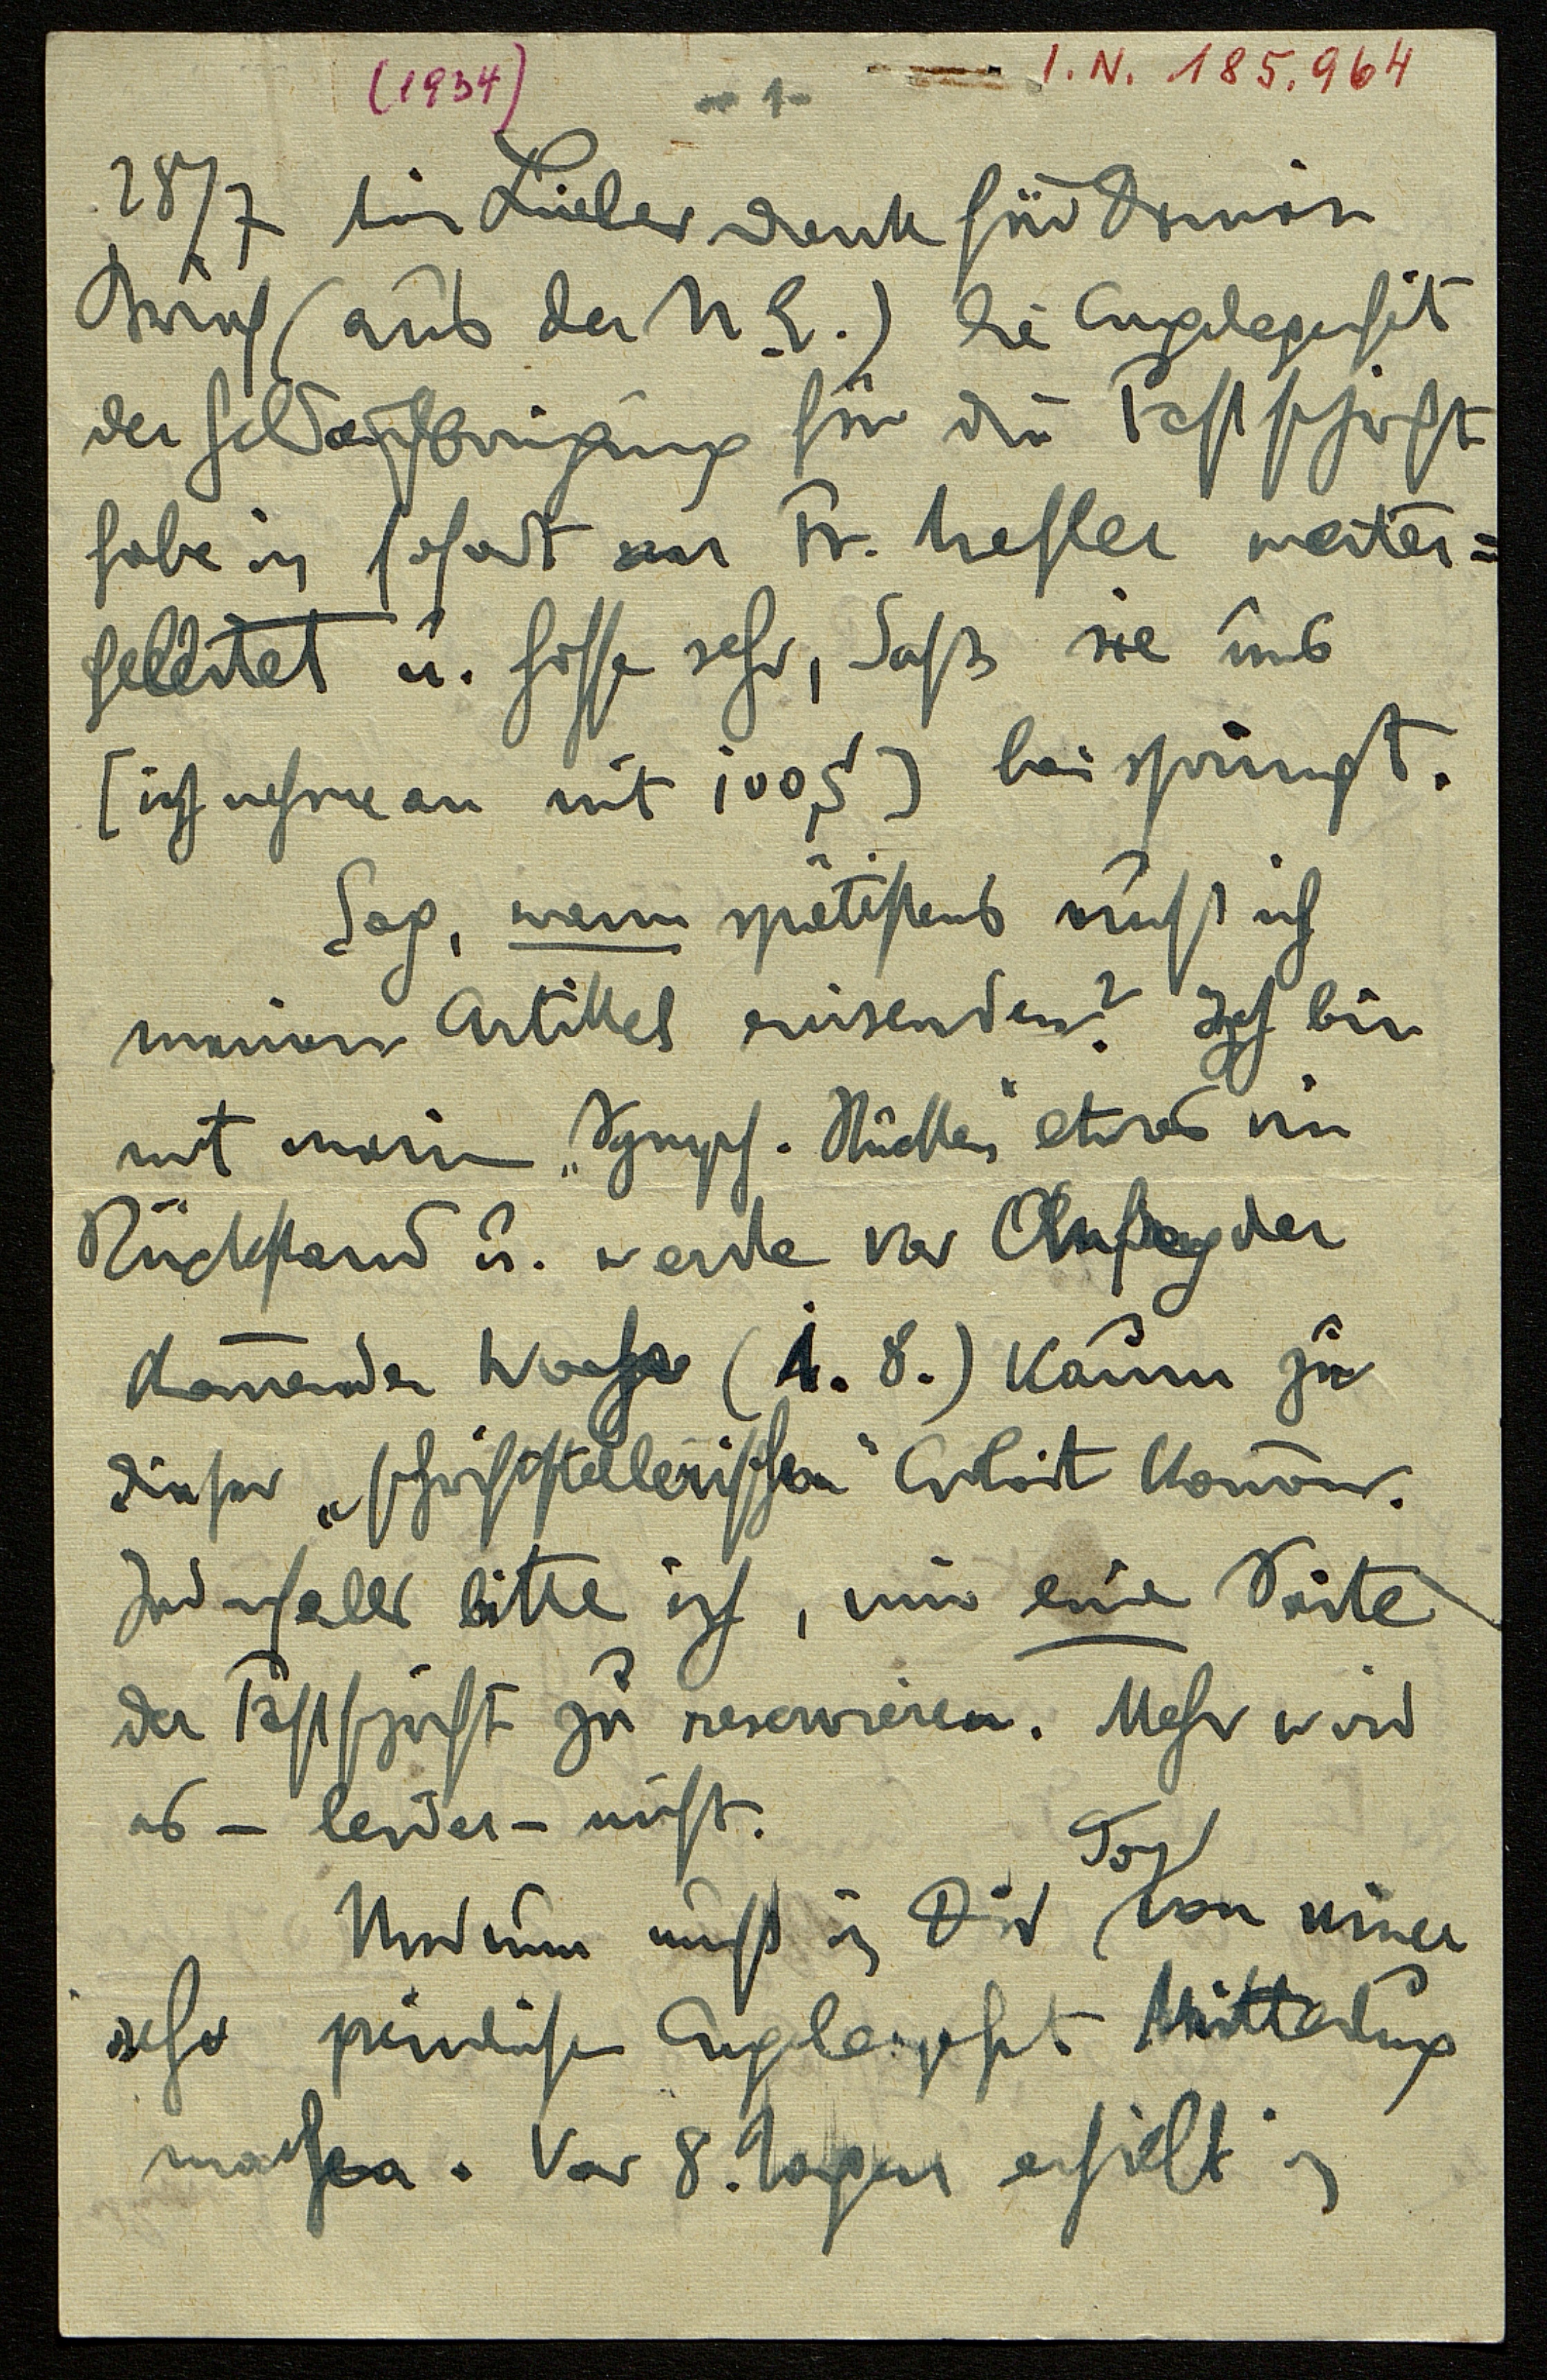 (1934)
– 1 –
I. N. 185.964
28/7 Mein Lieber danke für Deinen
Brief (aus der U. E.) Die Angelegenheit
der Geldaufbringung für die Festschrift
habe ich sofort an Fr. Hessler weiter=
geleitet u. hoffe sehr, daß sie uns
[ich nehme an mit 100 S] beispringt.
Sag, wann spätestens muß ich
meinen Artikel einsenden? Ich bin
mit meinen „Symph. Stücken“ etwas im
Rückstand u. werde vor Anfang der
kommenden Woche (1. 8.) kaum zu
dieser „schriftstellerischen“ Arbeit kommen.
Jedenfalls bitte ich, mir eine Seite
der Festschrift zu reservieren. Mehr wird
es – leider – nicht.
Und nun muß ich Dir Tory von einer
sehr peinlichen Angelegenheit Mitteilung
machen. Vor 8 Tagen erhielt ich